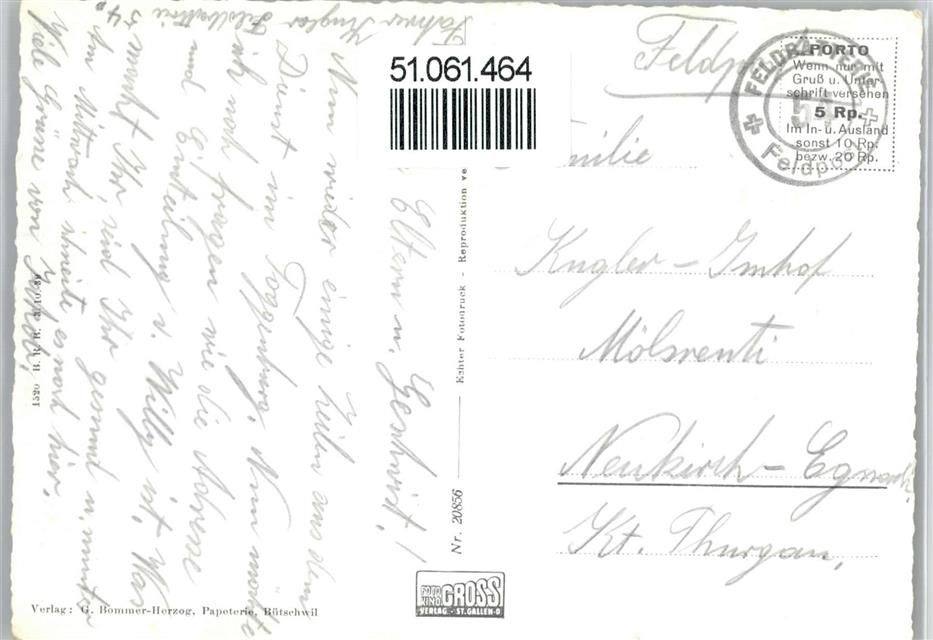 Fahrer Kugler
Feldbatterie
54.
Feldp
51.061.464
FELDBATTERIE
54
Feldpost
PORTO
Wenn nur mit
Gruß u. Unter-
schrift versehen
5 Rp.
Im In- u. Ausland
sonst 10 Rp.
bezw. 20 Rp.
milie
Kugler – Imhof
Mölsrenti
Neukirch – Egnach
Kt. Thurgau.
Eltern u. Geschwist.!
Nun wieder einige Zeilen aus dem
Dienst im Toggenburg. Nun möchte
ich noch fragen wie die Adresse
und Einteilung v. Willy ist. Was
macht Ihr, sind Ihr gesund u. munter
Am Mittwoch schneite es noch hier.
Viele Grüsse von
Echter Fotodruck - Reproduktion ve
Nr. 20856
1520 B. R. B. 3.10.39
Verlag: G. Bommer-Herzog, Papeterie, Bütschwil
FOTO KINO GROSS
VERLAG - ST. GALLEN-O